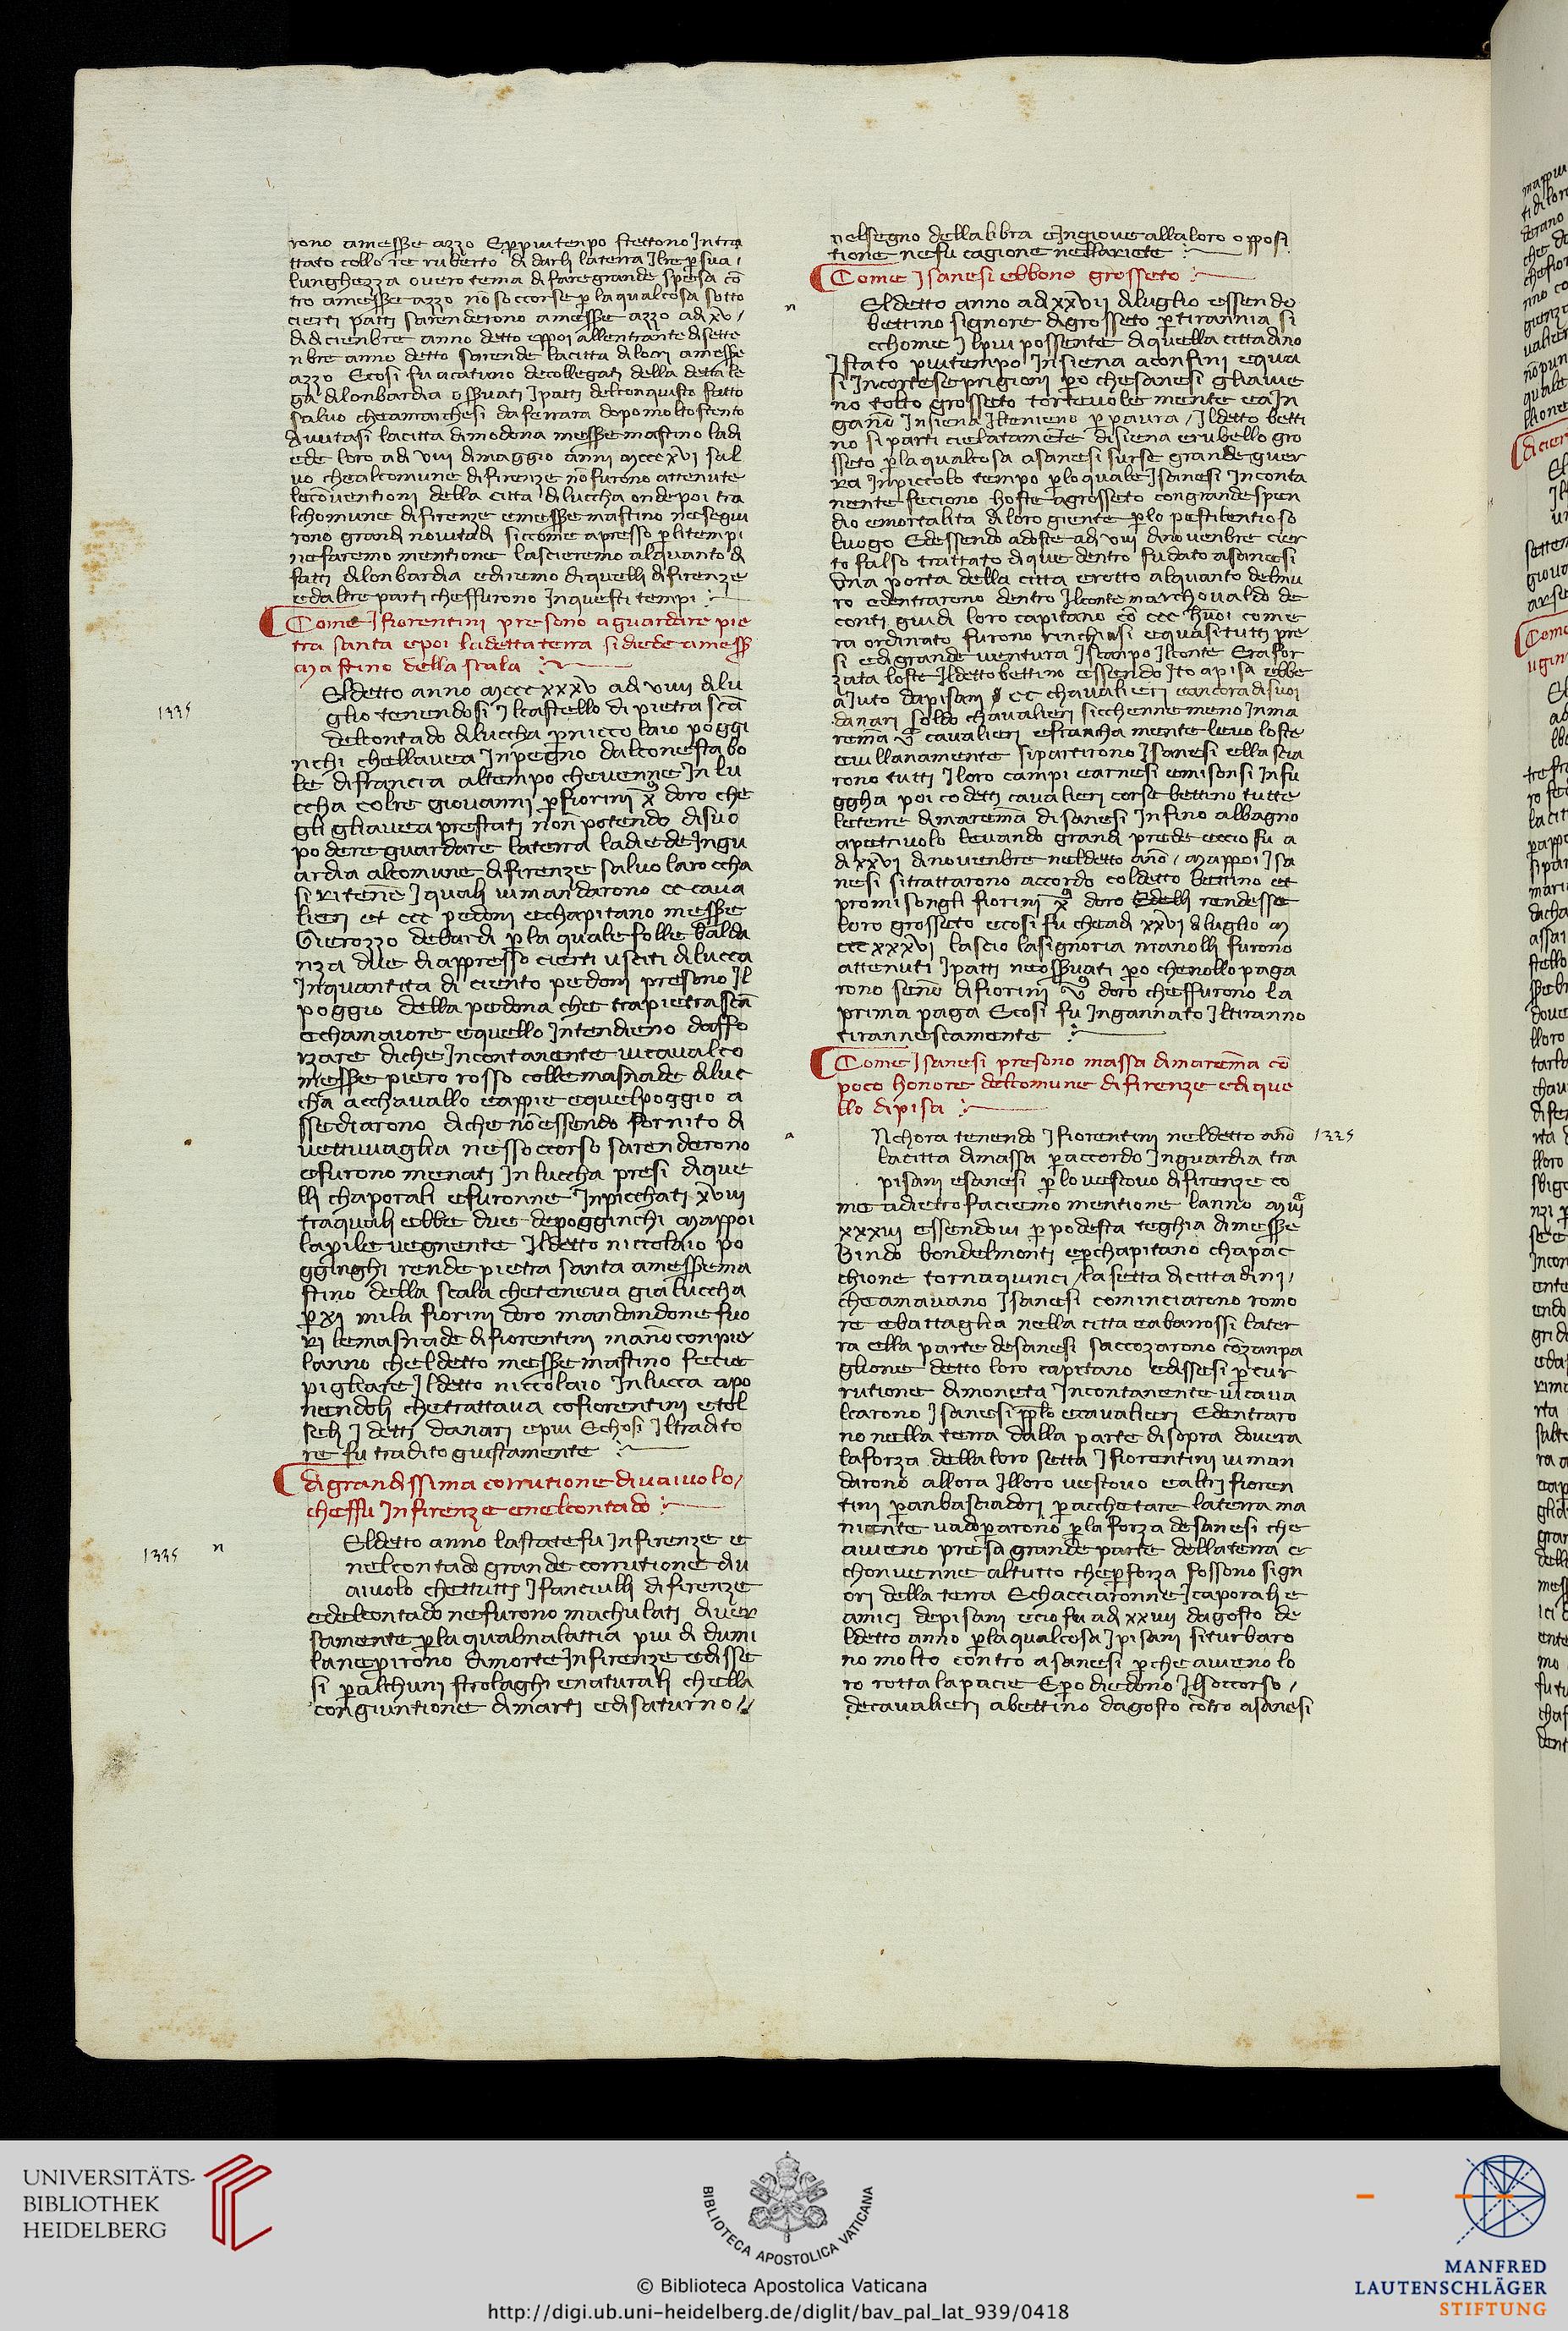 rono amesse azzo Eppiu tenpo stettono Jntra
ttato collo re ruberto di darli laterra Jlre p sua /
lunghezza overo tema di fare grande spesa cō
tro amesse azzo nō soccorse p la qualcosa sotto
cierti patti sarenderono amesse azzo adi xv /
di dicienbre anno detto eppoi allentrante di sette
nbre anno detto sarende lacitta di lodi amesse
azzo Ecosi fu acatuno decollegati della detta le
ga dilonbardia osservati Jpatti delconquisto fatto
salvo cheamarchesi da ferrara dopo molto stento
avutasi lacitta dimodona messe mastino ladi
ede loro adi viii dimaggio anni mccc xvi sal
vo chealcomune difirenze nō furono attenute
lecōventioni della citta di luccha onde poi tra
lchomune difirenze emesse mastino ne segui
rono grandi novitadi siccome apresso p litempi
nefaremo mentione lascieremo alquanto di
fatti dilonbardia ediremo di quelli difirenze
edaltre parti cheffurono Jnquesti tempi
Come Jfiorentini presono aguardare pie
tra santa epoi ladetta terra si diede amess
mastino della scala
Eldetto anno mccc xxxv adi viiii dilu
1335
glio tenendosi Jlcastello di pietra scā
delcontado diluccha p niccolaio poggi
nchi chellavea Jnpegno dalconestabo
le difrancia altempo chevenne Jn lu
ccha colre giovanni p fiorini x doro che
gli gliavea prestati non potendo disuo
podere guardare laterra ladiede Jngu
ardia alcomune difirenze salvo laroccha
si ritenne Jquali vi mandarono cc cava
lieri et ccc pedoni echapitano messe
Gierozzo debardi p la quale folle balda
nza due diappresso cierti usciti dilucca
Jnquantita di ciento pedoni presono Jl
poggio della pedona che tra pietra scā
echamaiore equello Jntendieno daffo
rzare diche Jncontanente vicavalco
messe piero rosso collemasnade diluc
cha acchavallo eappie equelpoggio a
ssediarono diche nō essendo fornito di
vettuvaglia nessoccorso sarenderono
efurono menati Jn luccha presi dique
lli chaporali efuronne Jnpicchati xviii
traquali ebbe due depogginchi mappoi
laprile vegnente Jldetto niccolaio po
gginghi rende pietra santa amesse ma
stino della scala cheteneva gia luccha
p xi mila fiorini doro mandandone fuo
ri lemasnade difiorentini mano conpie
lanno cheldetto messe mastino fecie
pigliare Jldetto niccolaio Jnlucca apo
nendoli chetrattava cofiorentini etol
seli Jdetti danari epiu Echosi Jltradito
re fu tradito giustamente
di grandissima corrutione divaivolo /
cheffu Jnfirenze enelcontado
Eldetto anno lastate fu Jnfirenze e
1335 n
nelcontado grande corrutione div
aivolo chettutti Jfanciulli difirenze
edelcontado nefurono machulati diver
samente p la qualmalattia piu di dumi
lanepirono dimorte Jnfirenze edisse
si p alchuni strolaghi enaturali chella
congiuntione dimarti edisaturno
nelsegno dellalibra eJngiove allaloro opposi
tione nefu cagione nellariete
Come Jsanesi ebbono grosseto
n
Eldetto anno adi xxvii diluglio essendo
bettino signore digrosseto p tirannia si
cchome Jlpiu possente diquella cittadino
Jstato piutempo Jnsiena aconfini equa
si Jncortese prigioni p o chesanesi gliavie
no tolto grosseto tortevole mente eaJn
gano Jnsiena Jltenieno p paura / Jldetto betti
no si parti cielatamēte disiena erubello gro
sseto p la qualcosa asanesi surse grande guer
ra Jnpiccolo tempo p lo quale Jsanesi Jnconta
nente feciono hoste agrosseto congrande spen
dio emortalita diloro giente p lo pestilentioso
luogo Edessendo adoste adi viii dinovenbre cier
to falso trattato dique dentro fudato asanesi
Una porta della citta erotto alquanto delmu
ro edentrarono dentro Jlconte marchovaldo de
conti guidi loro capitano cō ccc huoi come
ra ordinato furono rinchiusi equasi tutti pre
si edi grande ventura Jscanpo Jlconte Erafor
zata loste Jldetto bettino essendo Jto apisa ebbe
aJuto dapisani cc chavalieri eancora disuoi
danari soldo chavalieri sicchennemeno Jnma
rema cavalieri efrancha mente levo loste
evillanamente sipartirono Jsanesi ellascia
rono tutti Jloro campi earnesi emisonsi Jnfu
ggha poi co detti cavalieri corse bettino tutte
leterre dimarema disanesi Jnfino albagno
apetrivolo levando grandi prede eccio fu a
di xxvi dinovenbre neldetto ano / mappoi Jsa
nesi sitrattarono accordo coldetto bettino et
promisongli fiorini x doro Edelli rendesse
loro grosseto ecosi fu cheadi xxvi diluglio m
ccc xxxvi lascio lasignoria manolli furono
attenuti Jpatti neosservati p o chenollo paga
rono seno difiorini doro cheffurono la
prima paga Ecosi fu Jngannato Jltiranno
tirannescamente
Come Jsanesi presono massa dimarema cō
poco honore delcomune difirenze edi que
llo dipisa
a
Nchora tenendo Jfiorentini neldetto ano 1335
lacitta dimassa p accordo Jnguardia tra
pisani esanesi p lo vescovo difirenze co
me adietro faciemo mentione lanno
xxxiii essendovi p podesta teghia dimesse
Bindo bondelmonti ep chapitano chapac
chione tornaquinci / la setta dicittadini /
cheamavano Jsanesi cominciarono romo
re ebattaglia nella citta eabarrossi later
ra ella parte desanesi saccozarono cōzanpa
glione detto loro capitano edissesi p cur
rutione dimoneta Jncontanente vicava
lcarono Jsanesi pplo ecavalieri Edentraro
no nella terra dalla parte disopra dovera
laforza dellaloro setta Jfiorentini viman
darono allora Jlloro vescovo ealtri fioren
tini p anbasciadori p acchetare laterra ma
niente vadoparono p la forza desanesi che
avieno presa grande parte dellaterra e
chonvenne altutto chep forza fossono sign
ori della terra Echacciaronne Jcaporali e
amici depisani ecio fu adi xxiiii dagosto de
ldetto anno p la qualcosa Jpisani siturbaro
no molto contro asanesi p che avieno lo
ro rotta lapacie Ep o diedono Jlsoccorso /
decavalieri abettino dagosto cōtro asanesi
UNIVERSITÄTS-
BIBLIOTHEK
HEIDELBERG
BIBLIOTECA APOSTOLICA VATICANA
© Biblioteca Apostolica Vaticana
http://digi.ub.uni-heidelberg.de/diglit/bav_pal_lat_939/0418
MANFRED
LAUTENSCHLÄGER
STIFTUNG